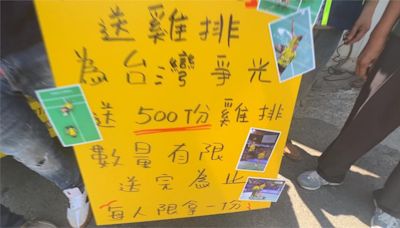 送雞排
為台灣爭光
送500份雞排
數量有限
送完為止
每人限拿一份